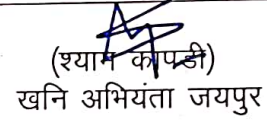 (श्याम कापडी)
खनि अभियंता जयपुर